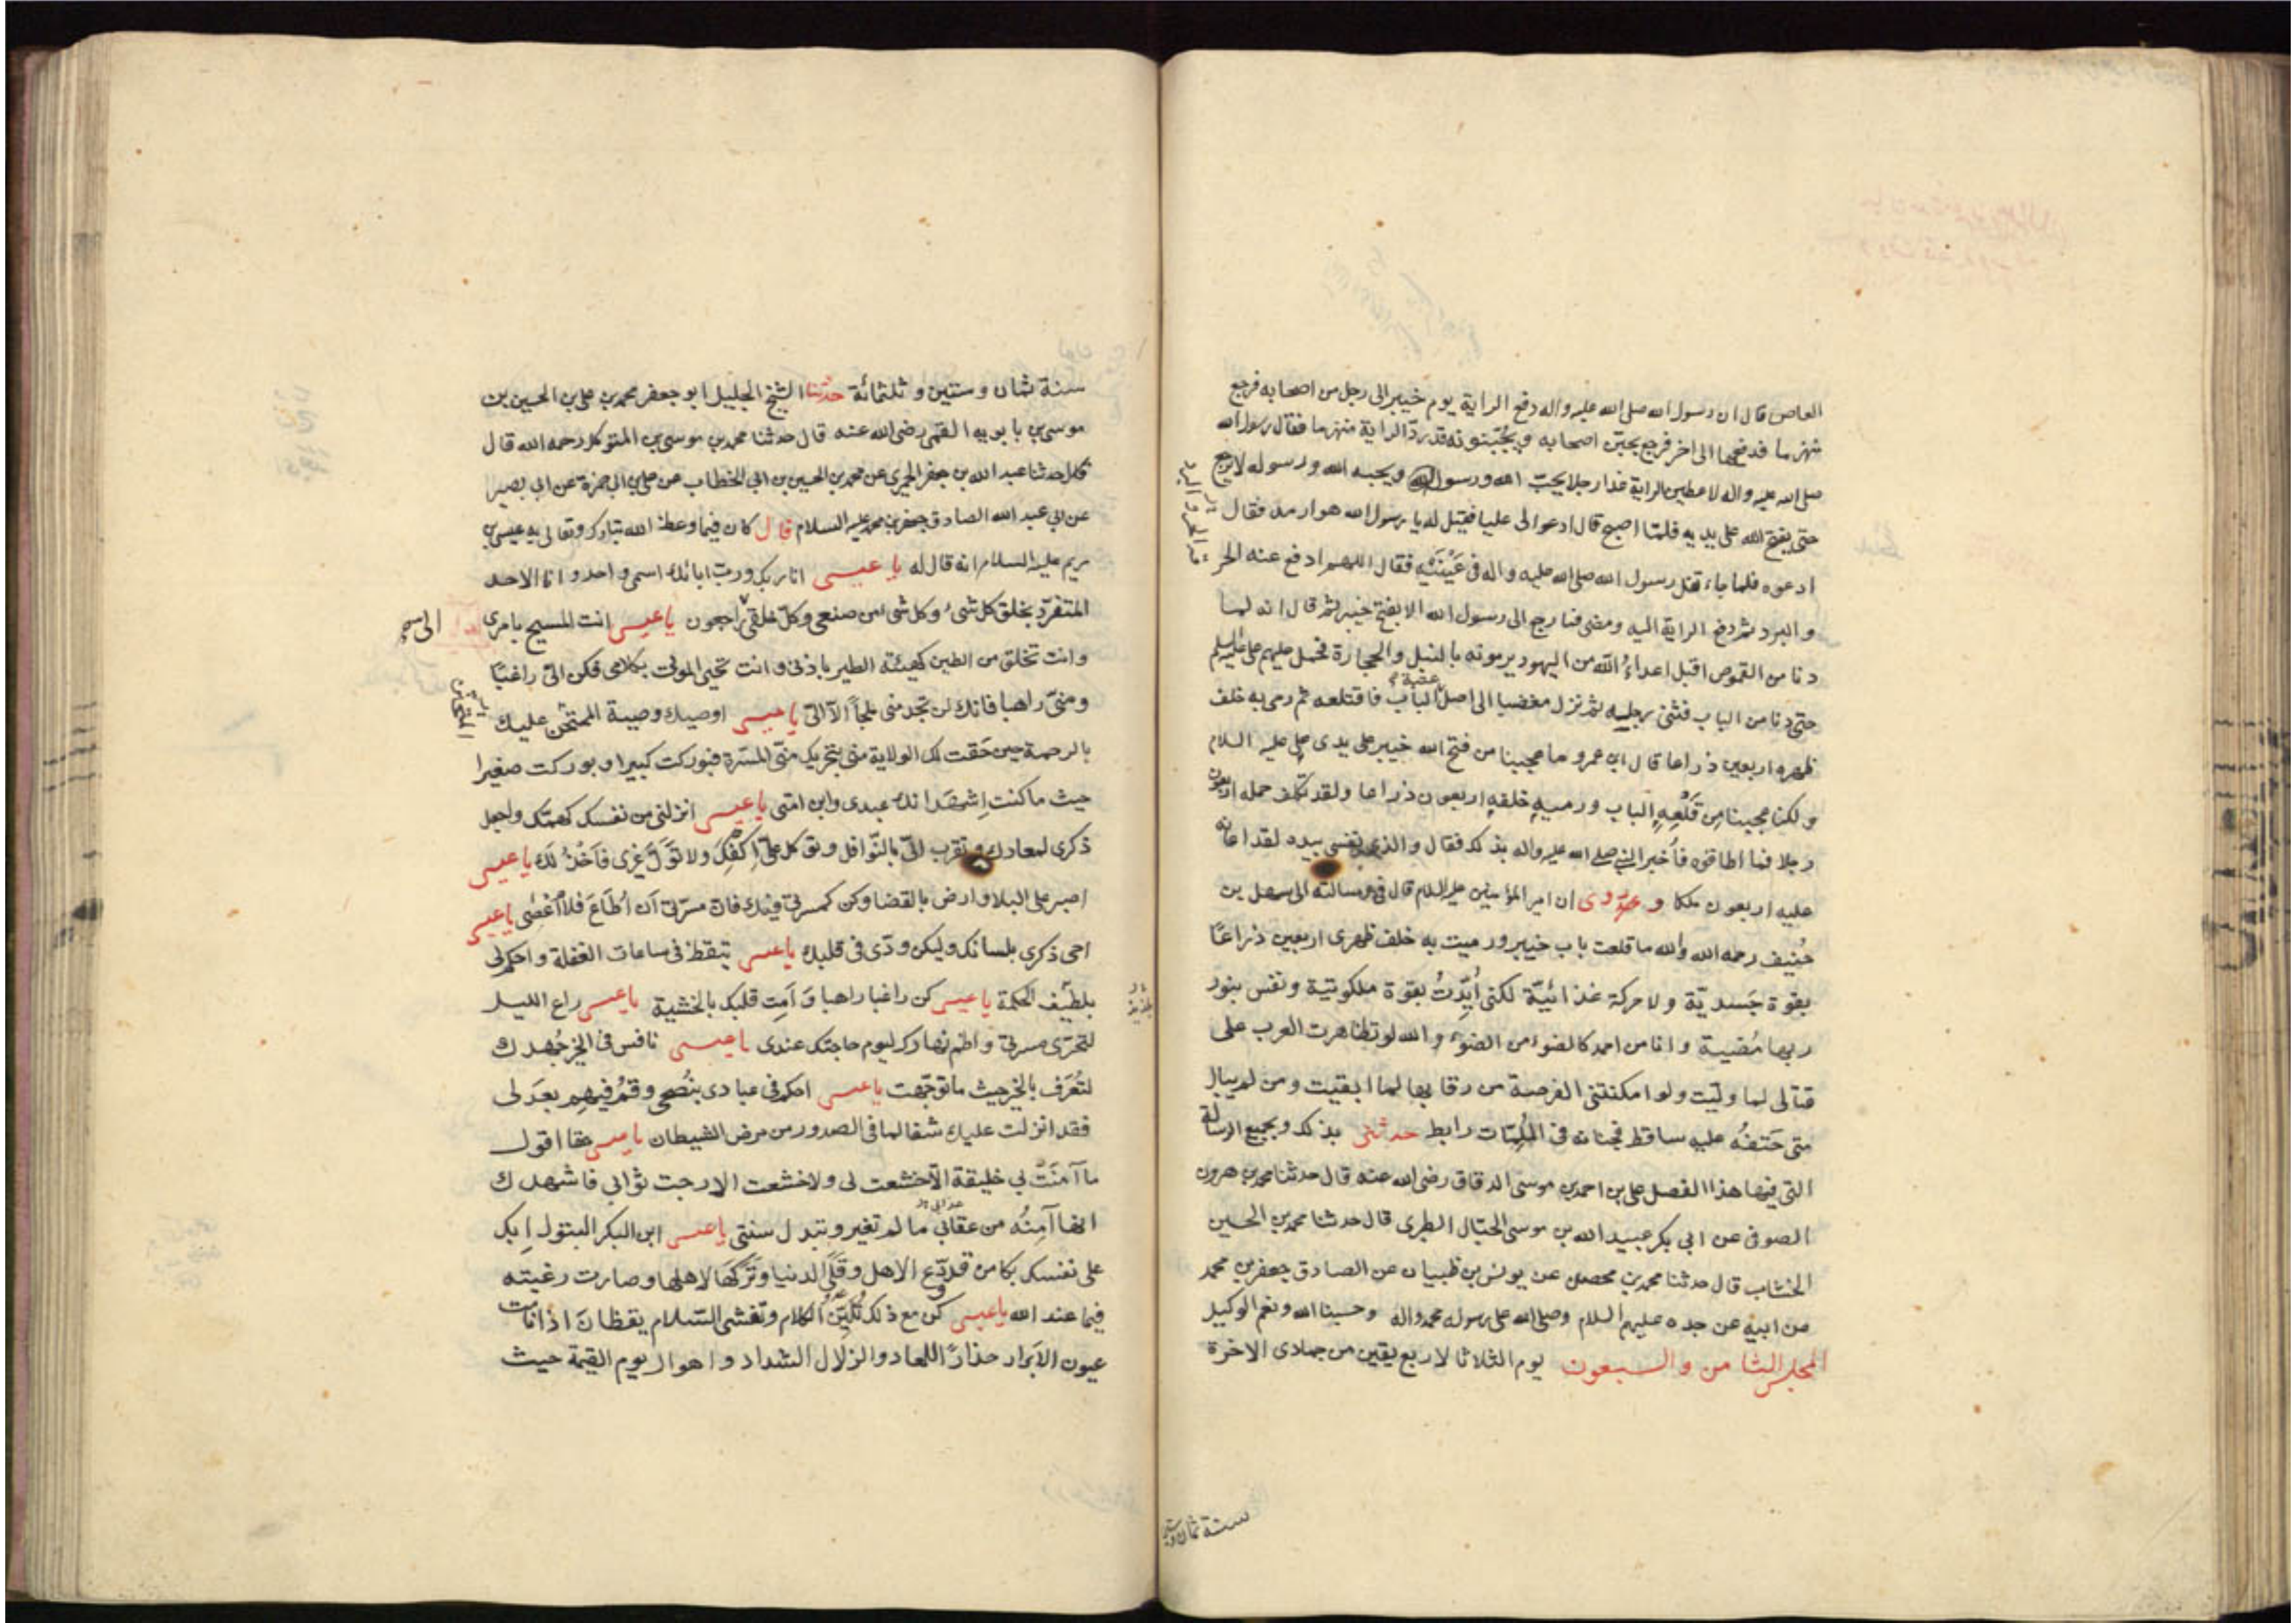 العاص قال ان رسول الله صلى الله عليه واله دفع الراية يوم خيبر الى رجل من اصحابه فرجع
منهزما فدفعها الى اخر فرجع يجبّن اصحابه ويجبّنونه قد ردّ الراية منهزما فقال رسول الله
صلى الله عليه واله لاعطين الراية غدا رجلا يحبّ الله ورسوله ويحبه الله ورسوله لا يرجع
حتى يفتح الله على يديه فلمّا اصبح قال ادعوا لى عليا فقيل له يا رسول الله هو ارمد فقال
ادعوه فلما جاء تفل رسول الله صلى الله عليه واله فى عَيْنَيْهِ فقال اللهم ادفع عنه الحر
و البرد ثم دفع الراية اليه ومضى فما رجع الى رسول الله الا بفتح خيبر ثم قال انه لما
دنا من القموص اقبل اعداءُ الله من اليهود يرمونه بالنبل والحجارة فحمل عليهم على عليه السلم
حتى دنا من الباب فثنى رجليه ثم نزل مغضبا الى اصل عتبة الباب فاقتلعه ثم رمى به خلف
ظهره اربعين ذراعا قال ابن عمرو ما عجبنا من فتح الله خيبر على يدى على عليه السلام
و لكنا عجبنا من قَلْعِهِ الباب ورميهِ خلفه اربعون ذراعا ولقد تكلف حمله اربعون
رجلا فما اطاقوه فأُخبر النبى صلى الله عليه واله بذلك فقال والذى نفسى بيده لقد اعانه
عليه اربعون ملكا و روى ان امير المؤمنين عليه السلام قال فى رسالته الى سهل بن
حُنيف رحمه الله والله ما قلعت باب خيبر ورميت به خلف ظهرى اربعين ذراعًا
بقوة جَسديّة ولا حركة غذائيّة لكنى أُيّدتُ بقوة ملكوتية ونفس بنور
ربها مُضيية وانا من احمد كالضوء من الضوء والله لو تظاهرت العرب على
قتالى لما وليت ولو امكنتنى الفرصة من رقابها لما ابقيت ومن لم يبال
متى حَتفُه عليه ساقط فجنانه فى المُلِمّات رابط حدثنى بذلك وبجميع الرسالة
التى فيها هذا الفصل على بن احمد بن موسى الدقاق رضى الله عنه قال حدثنا محمد بن هرون
الصوفى عن ابى بكر عبيد الله بن موسى الحبّال الطبرى قال حدثنا محمد بن الحسين
الخشاب قال حدثنا محمد بن محصن عن يونس بن ظبيان عن الصادق جعفر بن محمد
عن ابيه عن جده عليهم السلام وصلى الله على رسوله محمد واله وحسبنا الله ونعم الوكيل
المجلس الثامن والسبعون يوم الثلاثا لاربع بقين من جمادى الاخرة
سنة ثمان وستين
سنة ثمان وستين وثلثمائة حدثنا الشيخ الجليل ابو جعفر محمد بن على بن الحسين بن
موسى بن بابويه القمى رضى الله عنه قال حدثنا محمد بن موسى بن المتوكل رحمه الله قال
قال حدثنا عبد الله بن جعفر الحميرى عن محمد بن الحسين بن ابى الخطاب عن على بن ابى حمزة عن ابى بصير
عن ابى عبد الله الصادق جعفر بن محمد عليه السلام قال كان فيما وعظ الله تبارك وتعالى به عيسى بن
مريم عليه السلام انه قال له يا عيسى انا ربك ورب ابائك اسمى واحد وانا الاحد
المتفرّد بخلق كل شىء وكل شى من صنعى وكل خلقى راجعون يا عيسى انت المسيح بامرى
وانت تخلق من الطين كهيئة الطير باذنى وانت تحيى الموتى بكلامى فكن الىّ راغبًا
ومنّى راهبا فانك لن تجد منى ملجأً الا الىّ يا عيسى اوصيك وصية المتحنن عليك
بالرحمة حين حَقت لك الولاية منى بتحريك منّى المسرة فبوركت كبيرا وبوركت صغيرا
حيث ما كنت اشهد انك عبدى وابن امتى يا عيسى انزلنى من نفسك كهمّك واجعل
ذكرى لمعادك وتقرب الىّ بالنّوافل وتوكل علىّ اكفِكَ ولا تولَّ غيرى فاخذلك يا عيسى
اصبر على البلا وارض بالقضا وكن كمسرتى فيك فان مسرّتى اَن اُطَاعَ فلا اُعْصٰى يا عيسى
احى ذكرى بلسانك وليكن ودّى فى قلبك يا عيسى تيقظ فى ساعات الغفلة واحكم لى
بلطيف الحكمة يا عيسى كن راغبا راهبا وَاَمِت قلبك بالخشية يا عيسى راع الليل
لتحرّى مسرتى واظم نهارك ليوم حاجتك عندى يا عيسى نافس فى الخير جُهدك
لتُعرَف بالخير حيث ما توجّهت يا عيسى احكم فى عبادى بنُصحى وقُم فيهم بعَدلى
فقد انزلت عليك شفا لما فى الصدور من مرض الشيطان يا عيسى حقا اقول
ما آمنَتْ بى خليقة الا خشعت لى ولا خشعت لى الا رجت ثوابى فاشهدك
انها آمِنَةُ من عقابى ما لم تغير وتبدل سنتى يا عيسى ابن البكر البتول اِبك
على نفسك بكا من قد ودّع الاهل وقَلَى الدنيا وتركها لاهلها وصارت رغبته
فيما عند الله يا عيسى كن مع ذلك تُليّن الكلام وتفشى السّلام يقظانَ اذا نامت
عيون الاَبرار حذارًا للمعاد والزلازل الشداد واهوال يوم القيمة حيث